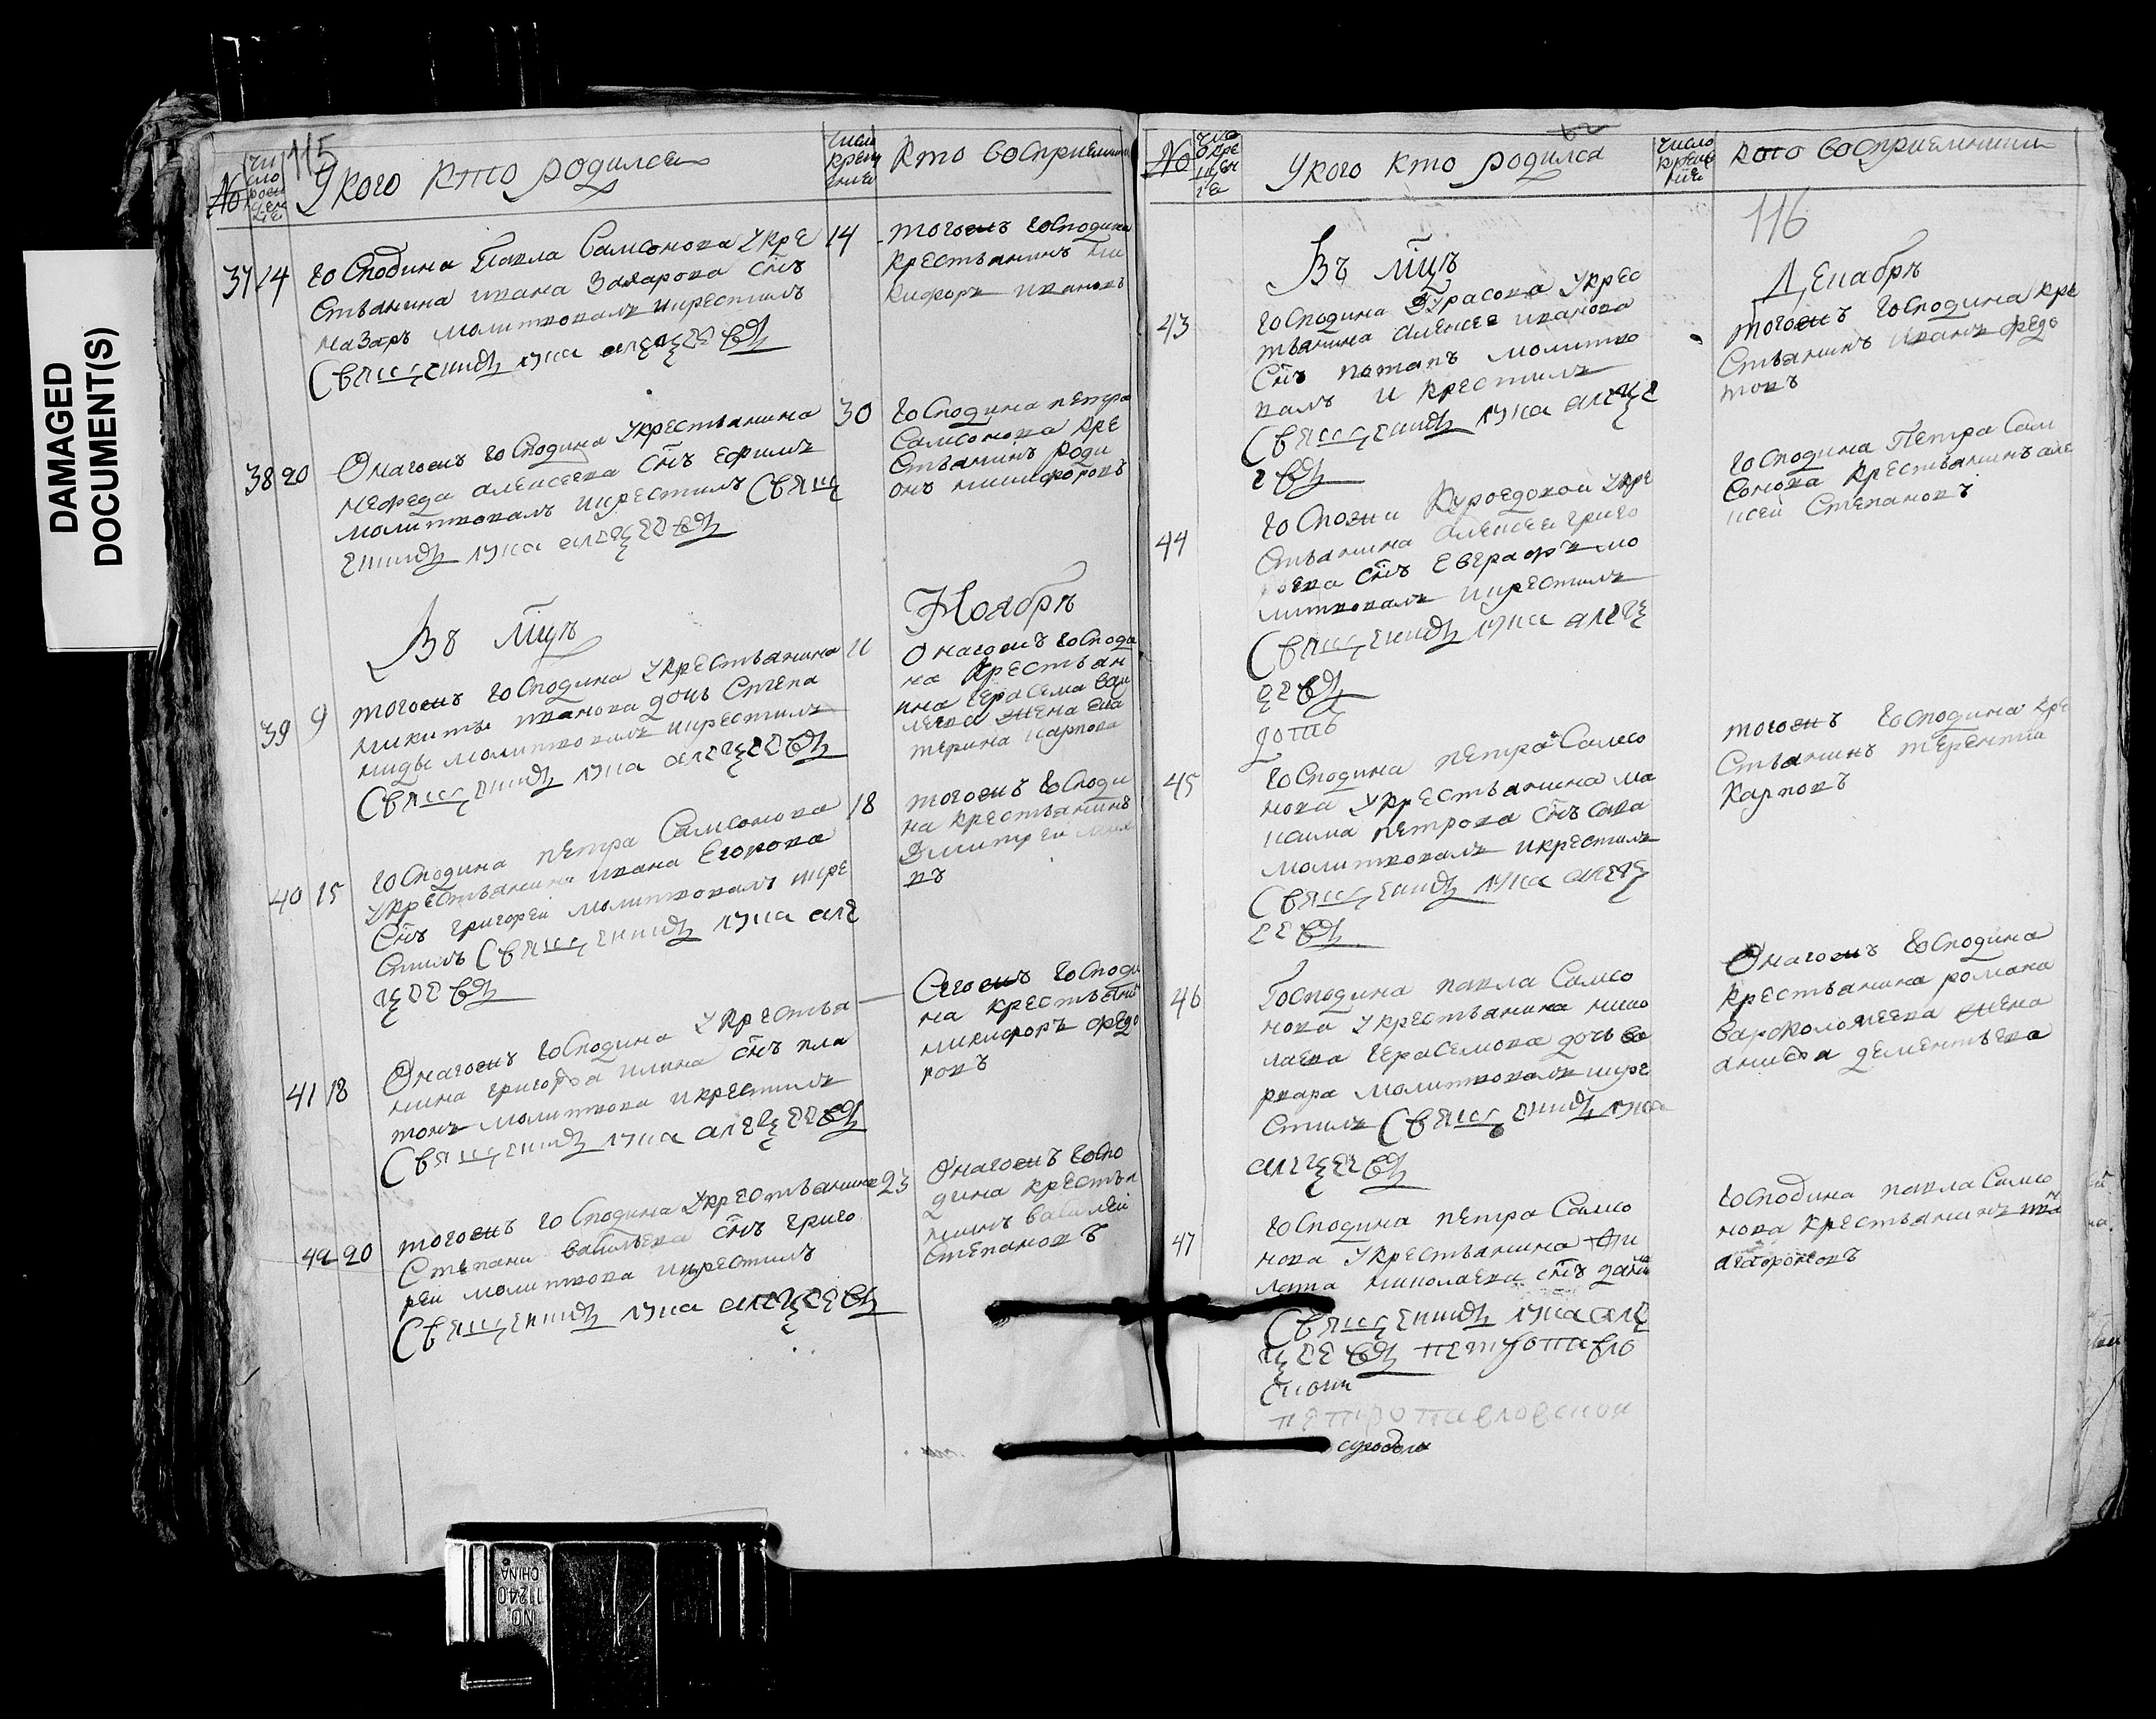 DAMAGED
DOCUMENT(S)
115
№
чи
сло
рож
ден
ія
У кого кто родился
число
крещ
ения
Кто восприемни
37 14
господина Павла Самсонова у кре
стьянина ивана Захарова снъ
назаръ молитвовалъ и крестилъ
Священникъ лука алеѯеевъ
14
тогожъ господина
крестьянинъ ни
кифоръ ивановъ
38 20
Онагожъ господина у крестьянина
мефеда алексеева снъ ефимъ
молитвовалъ и крестилъ Свящ
енникъ лука алеѯеевъ
30
господина петра
Самсонова кре
стьянинъ роди
онъ никифоровъ
Въ мцѣ
Ноябрѣ
39 9
тогожъ господина у крестьянина
никиты иванова дочь Степа
нида молитвовалъ и крестилъ
Священникъ лука алеѯеевъ
11
Онагожъ господи
на крестьян
ина герасема
жена ека
терина карпова
40 15
господина петра Самсонова
у крестьянина ивана Егорова
снъ григорей молитвовалъ и кре
стилъ Священникъ лука але
ѯеевъ
18
тогожъ господи
на крестьянинъ
Дмитрей
въ
41 18
Онагожъ господина у крестья
нина григорья илина снъ пла
тонъ молитвова и крестилъ
Священникъ лука алеѯеевъ
—
Сегожъ господи
на крестьянинъ
никифоръ федо
ровъ
42 20
тогожъ господина у крестьянина
Степана васильева снъ григо
рей молитвова и крестилъ
Священникъ лука алеѯеевъ
23
Онагожъ госпо
дина крестья
нинъ василей
Степановъ
62
№
чис
о кре
щен
ія
У кого кто родился
число
креще
нiи
кто восприемники
116
Въ мцѣ
Декабрѣ
43
господина Дурасова у крес
тьянина Алексея иванова
снъ потапъ молитво
валъ и крестилъ
Священникъ лука алеѯе
евъ
тогожъ господина кре
стьянинъ иванъ федо
товъ
44
госпожи Куроедовой у кре
стьянина Алексея григо
рьева снъ Евграфъ мо
литвовалъ и крестилъ
Священникъ лука алеѯ
еевъ
господина Петра Сам
сонова крестьянинъ але
ксей Степановъ
45
господина петра Самсо
нова у крестьянина ма
ксима петрова снъ сава
молитвовалъ и крестилъ
Священникъ лука алеѯ
еевъ
тогожъ господина кре
стьянинъ терентий
Карповъ
46
Господина павла Самсо
нова у крестьянина нико
лаева герасемова дочь ва
рвара молитвовалъ и кре
стилъ Священникъ лука
алеѯеевъ
Онагожъ господина
крестьянина романа
варфоломеева жена
анисья дементьева
47
господина петра Самсо
нова у крестьянина Фи
лата николаева снъ данила
Священникъ лука але
ѯеевъ петропавло
ской
петропавловской
суходола
господина павла Самсо
нова крестьянинъ ива
NO.
11240
CHINA